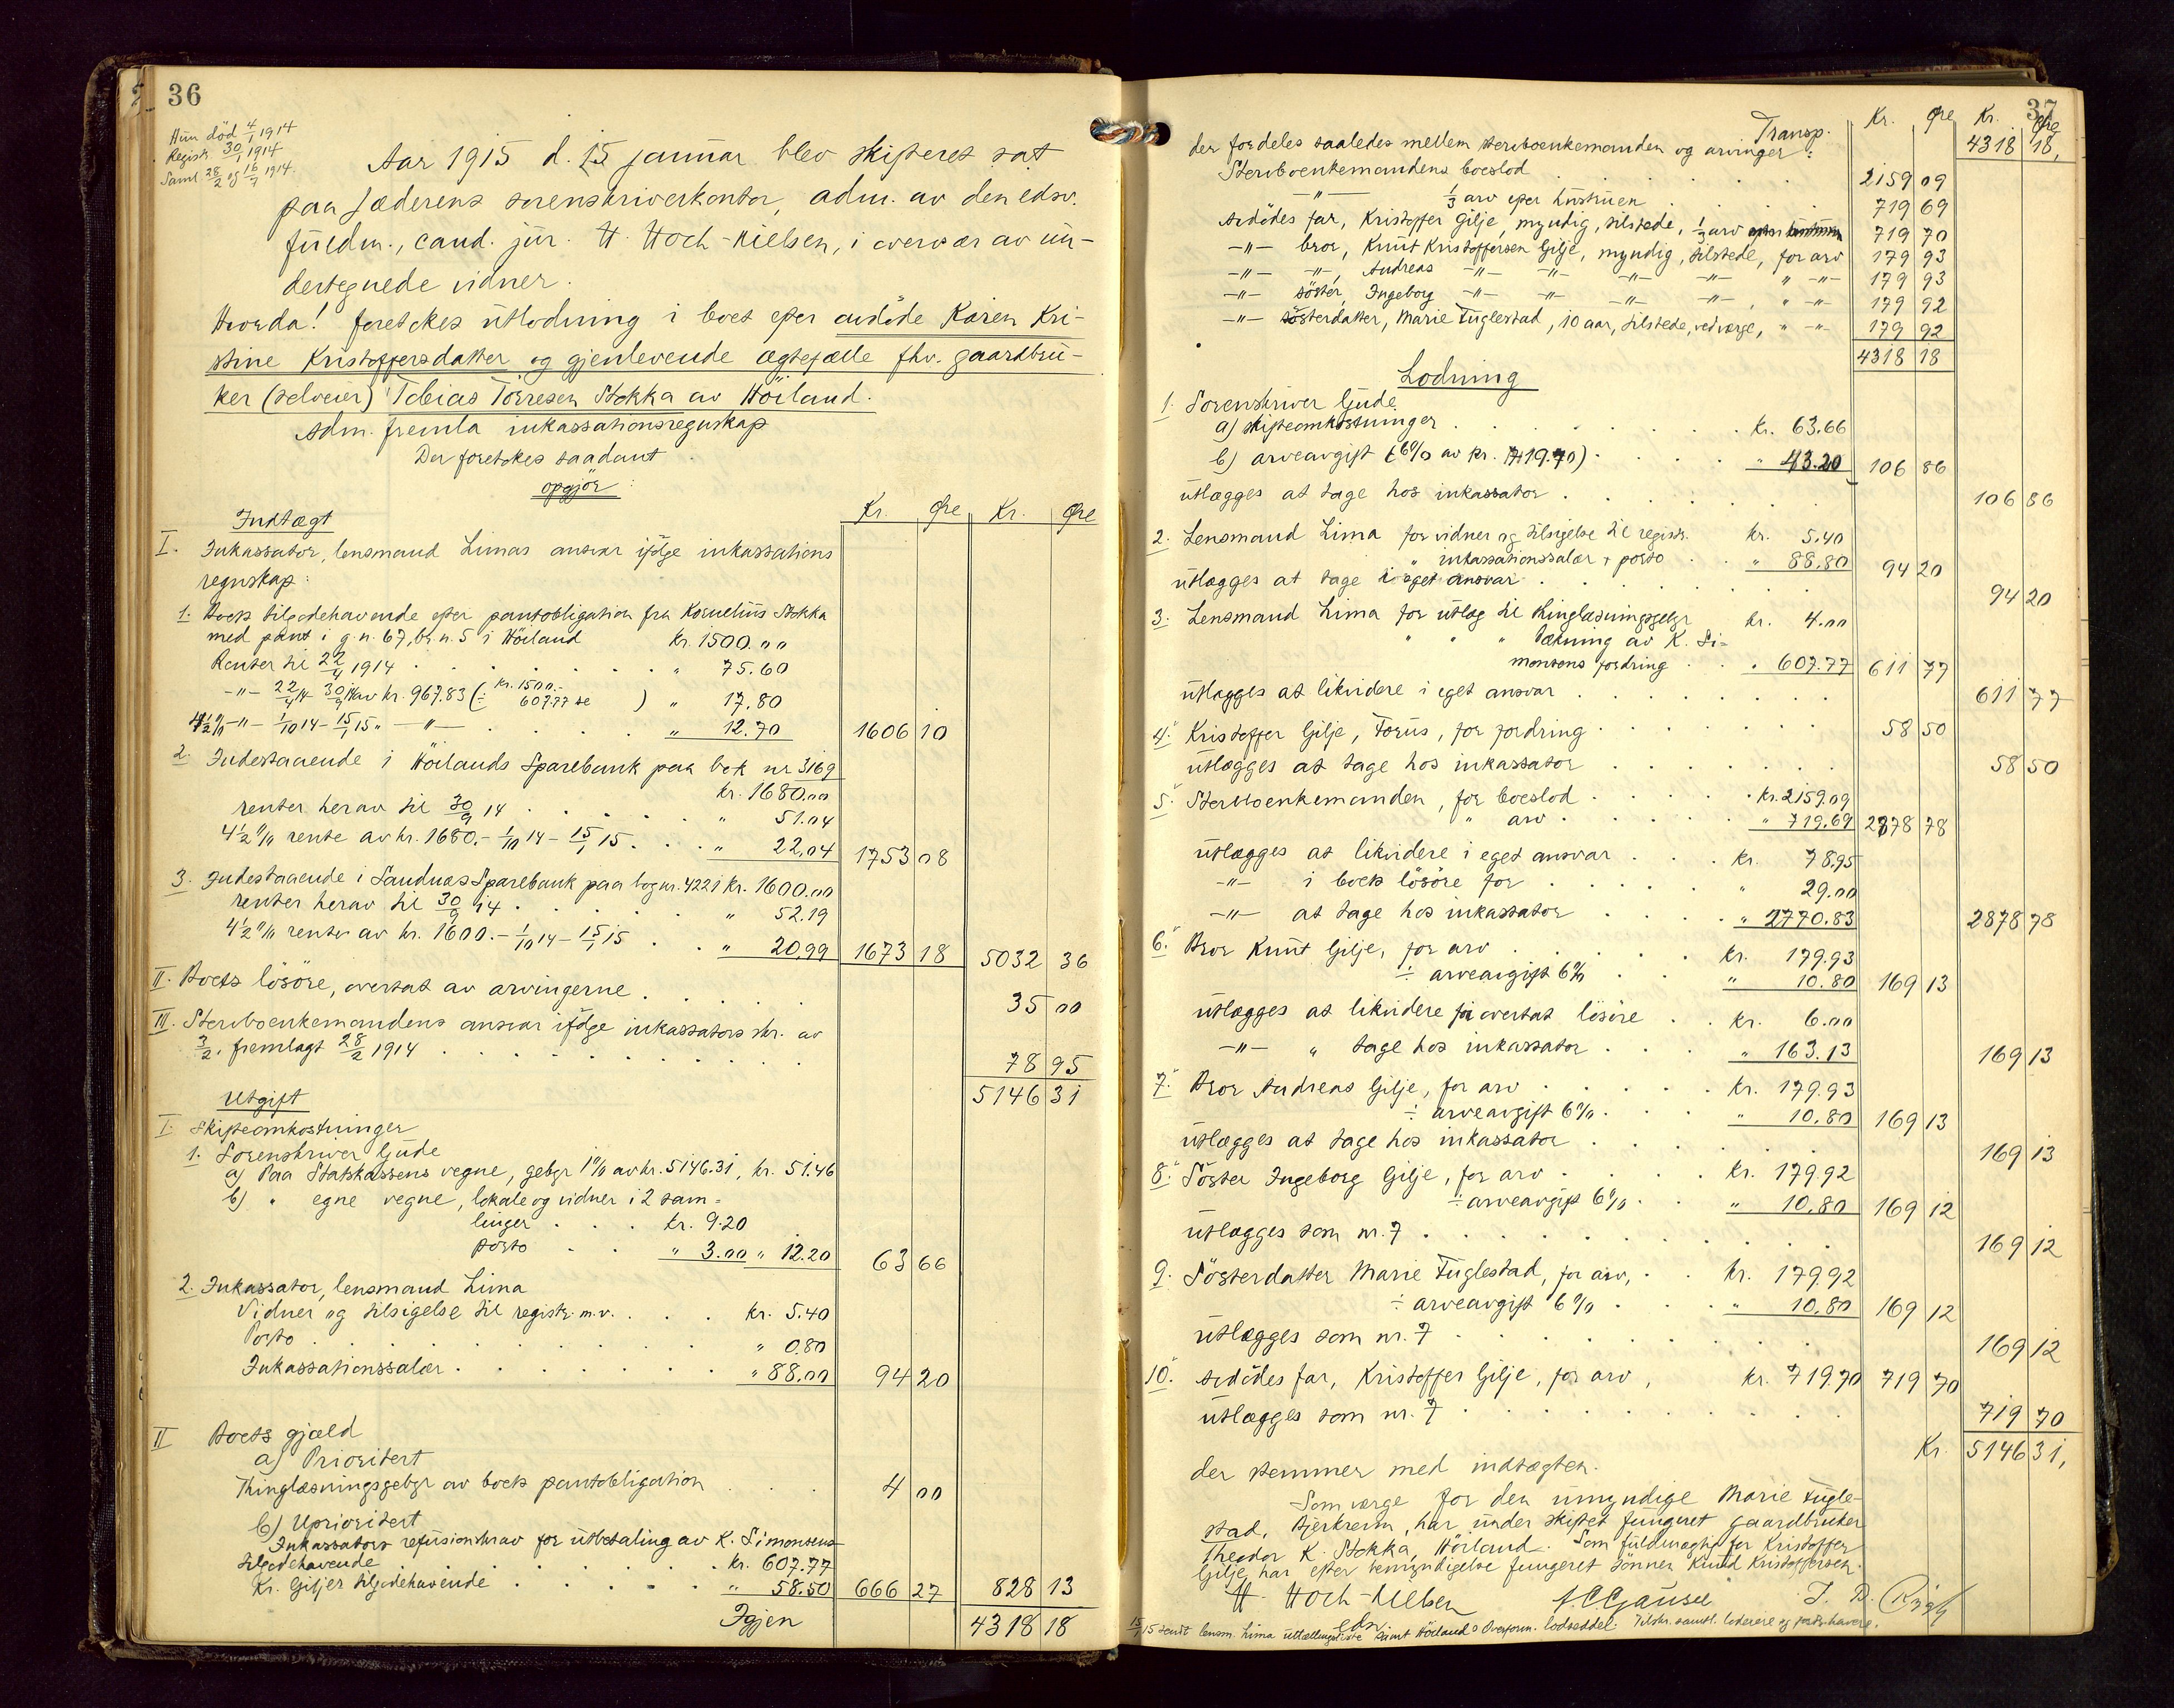 36
Hun död 4/1 1914
Registr. 30/1 1914
Saml. 28/2 og 16/7 1914.
Aar 1915 d. 15 januar blev skifteret sat
paa Jæderens sorenskriverkontor, adm. av den edsv.
fuldm., cand. jur. H. Hoch-Nielsen, i overvær av un-
dertegnede vidner.
Hvorda! foretokes utlodning i boet efter avdöde Karen Kri-
stine Kristoffersdatter og gjenlevende ægtefælle fhv. gaardbru-
ker (selveier) Tobias Törresen Stokka av Höiland.
Adm. fremla inkassationsregnskap
Der foretokes saadant
opgjör:
Kr. Øre Kr. Øre
Indtægt
I. Inkassator, lensmand Limas ansvar ifölge inkassations
regnskap:
1. Boets tilgodehavende efter pantobligation fra Kornelius Stokka
med pant i g.n. 67, br.n. 5 i Höiland kr. 1500.00
Renter til 22/4 1914 . . . . " 75.60
-"- 22/4 14 - 30/9 14 av kr. 967.83 (kr. 1500.- ÷ 607.77 se ) " 17.80
4 1/2 % -"- 1/10 14 - 15/1 15 " -"- . . . " 12.70 1606 10
2. Indestaaende i Höilands Sparebank paa bok nr 3169
kr. 1680.00
renter herav til 30/9 14 . . . . " 51.04
4 1/2 % rente av kr. 1680.- 1/10 14 - 15/1 15 . . . " 22.04 1753 08
3. Indestaaende i Sandnes Sparebank paa bog nr. 4221 kr. 1600.00
renter herav til 30/9 14 . . . . " 52.19
4 1/2 % rente av kr. 1600.- 1/10 14 - 15/1 15 . . " 20.99 1673 18 5032 36
II. Boets lösöre, overtat av arvingerne . . . . . 35 00
III. Stervboenkemandens ansvar ifölge inkassators skr. av
3/2, fremlagt 28/2 1914 . . . . . . 78 95
5146 31
Utgift
I. Skifteomkostninger
1. Sorenskriver Gude
a) Paa Statskassens vegne, gebyr 1% av kr. 5146.31, kr. 51.46
b) " egne vegne, lokale og vidner i 2 sam-
linger . . . kr. 9.20
porto . . " 3.00 " 12.20 63 66
2. Inkassator, lensmand Lima
Vidner og tilsigelse til registr. m.v. . . . kr. 5.40
Porto . . . . . . " 0.80
Inkassationssalær . . . . . . " 88.00 94 20
II Boets gjæld
a) Prioritert
Thinglæsningsgebyr av boets pantobligation . . . 4 00
b) Uprioritert
Inkassators refusionskrav for utbetaling av K. Simonsens
tilgodehavende . . . . . . kr. 607.77
Kr. Giljes tilgodehavende . . . . . " 58.50 666 27 828 13
Igjen 4318 18
37
Kr. Øre Kr. Øre
Transp. 4318 18,
der fordeles saaledes mellem stervboenkemanden og arvinger:
Stervboenkemandens boeslod . . . . . 2159 09
-"- 1/3 arv efter hustruen . . . . 719 69
Avdödes far, Kristoffer Gilje, myndig, tilstede, 1/3 arv efter hustruen 719 70
-"- bror, Knut Kristoffersen Gilje, myndig, tilstede, for arv 179 93
-"- -"-, Andreas -"- -"- -"- -"- " -"- 179 93
-"- söster, Ingeborg -"- -"- -"- -"-, " -"- 179 92
-"- sösterdatter, Marie Fuglestad, 10 aar, tilstede, ved værge, " -"- 179 92
4318 18
Lodning
1. Sorenskriver Gude
a) skifteomkostninger . . . . . . kr. 63.66
b) arveavgift (6% av kr. 719.70) . . . . " 43.20 106 86
utlægges at tage hos inkassator . . . . . 106 86
2. Lensmand Lima for vidner og tilsigelse til registr. kr. 5.40
" inkassationssalær + porto . . " 88.80 94 20
utlægges at tage i eget ansvar . . . . . 94 20
3. Lensmand Lima for utlæg til thinglæsningsgebyr kr. 4.00
" " " dækning av K. Si-
monsens fordring . . " 607.77 611 77
utlægges at likvidere i eget ansvar . . . . . 611 77
4. Kristoffer Gilje, Forus, for fordring . . . . . 58 50
utlægges at tage hos inkassator . . . . . 58 50
5. Stervboenkemanden, for boeslod . . . . kr. 2159.09
" arv . . . . " 719.69 2878 78
utlægges at likvidere i eget ansvar . . . kr. 78.95
-"- i boets lösöre for . . . . " 29.00
-"- at tage hos inkassator . . . . " 2770.83 2878 78
6. Bror Knut Gilje, for arv . . . . kr. 179.93
÷ arveavgift 6% . . " 10.80 169 13
utlægges at likvidere for overtat lösöre . . kr. 6.00
-"- " tage hos inkassator . . . " 163.13 169 13
7. Bror Andreas Gilje, for arv . . . . kr. 179.93
÷ arveavgift 6% . . . " 10.80 169 13
utlægges at tage hos inkassator . . . . . 169 13
8. Söster Ingeborg Gilje, for arv . . . . kr. 179.92
÷ arveavgift 6% . . " 10.80 169 12
utlægges som nr. 7 . . . . . . 169 12
9. Sösterdatter Marie Fuglestad, for arv, . . kr. 179.92
÷ arveavgift 6% . . . " 10.80 169 12
utlægges som nr. 7 . . . . . . 169 12
10. Avdödes far, Kristoffer Gilje, for arv, kr. 719.70 719 70
utlægges som nr. 7 . . . . . . 719 70
Kr. 5146 31,
der stemmer med indtægten.
Som værge for den umyndige Marie Fugle-
stad, Bjerkreim, har under skiftet fungeret gaardbruker
Theodor K. Stokka, Höiland. Som fuldmægtig for Kristoffer
Gilje har efter bemyndigelse fungeret sönnen Knud Kristoffersen.
H. Hoch-Nielsen A.C. Gausel J. B.
edsv.
15/1 15 sendt lensm. Lima utlællingsliste samt Höilands Overform. lodseddel. Tilskr. samtl. lodeiere og fordr.havere.